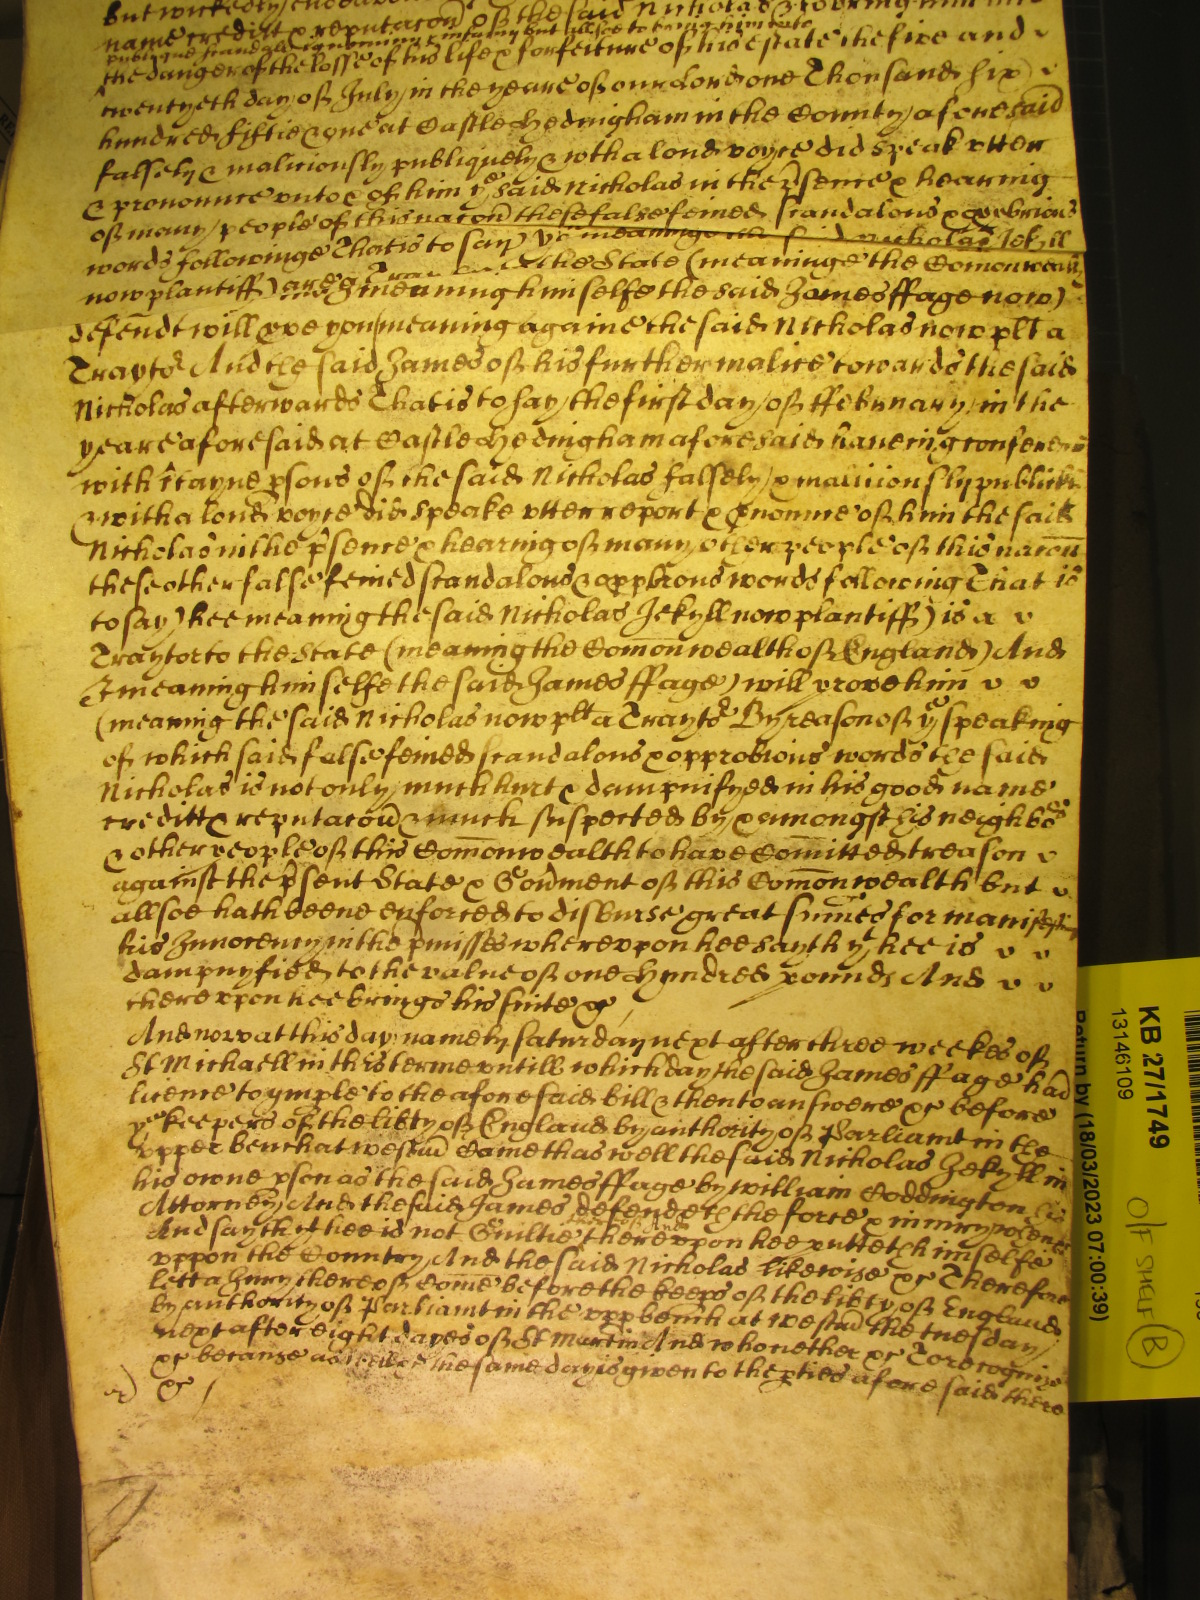 but wickedly
name creditt & reputacon of the said Nicholas & to bring him into
publique scandall ignominy & infamy but allsoe to bring him into
the danger of the losse of his life & forfeiture of his estate the five and
twentyeth day of July in the yeare of our Lord one Thousand six
hundred fiftie & one at Castle Hedingham in the County aforesaid
falsely & maliciously publiquely & wth a loud voyce did speak utter
& pronounce unto & of him ye said Nicholas in the psence & hearing
of many people of this nacon these false feined scandalous & opprobrious
words followinge That is to say you meaninge the said Nicholas Jekyll
now plantiff) are a Traytor to the State (meaninge the Comonwealth
and I meaning himselfe the said James ffage now
defendt will prove you meaning againe the said Nicholas now plt a
Traytor And the said James of his further malice towards the said
Nicholas afterwards That is to say the first day of ffebruary in the
yeare aforesaid at Castle Hedingham aforesaid haveing conference
with ctayne psons of the said Nicholas falsely & maliciously publickly
& with a loud voyce did speake utter report & pnounce of him the said
Nicholas in the psence & hearing of many other people of this nacon
these other false feined scandalous & opprbrous words following That is
to say) hee meaning the said Nicholas Jekyll now plantiff) is a
Traytor to the State (meaning the Comonwealth of England) And
I meaning himselfe the said James ffage) will prove him
(meaning the said Nicholas now plt a Traytor By reason of ye speaking
of which said false feined scandalous & opprobious words the said
Nicholas is not only much hurt & dampnifyed in his good name
creditt & reputacon & much suspected by & amongst his neighbors
& other people of this Comonwealth to have Comitted treason
against the psent State & Govment of this Comonwealth but
allsoe hath beene enforced to disburse great summes for manifesting
his Innocency in the pmisses whereupon hee sayth yt hee is
dampnyfied to the value of one Hundred pounds And
thereupon hee brings his suite &c
And now at this day namely saturday next after three weekes of
St Michaell in this terme untill which day the said James ffage had
licence to imple to the aforesaid bill & then to answere &c before
ye keepers of the libty of England by authority of Parliamt in the
upper bench at Westm Came thas well the said Nicholas Jekyll in
his owne pson as the said James ffage by william Coddington his
Attorney And the said James defendeth the force & iniury when &c
And sayth yt hee is not Guiltie thereof And thereupon hee putteth himselfe
uppon the Country And the said Nicholas likewise &c Therefore
lett a Jury thereof Come before the keeps of the libty of England
by authority of Parliamt in the upp bench at westm the tuesday
next after eight dayes of St Martin And who nether &c To recognize
&c because as well &c the same day is given to the pties aforesaid there
&c
KB 27/1749
13146109
Return by (18/03/2023 07:00:39)
Off Shelf (B)